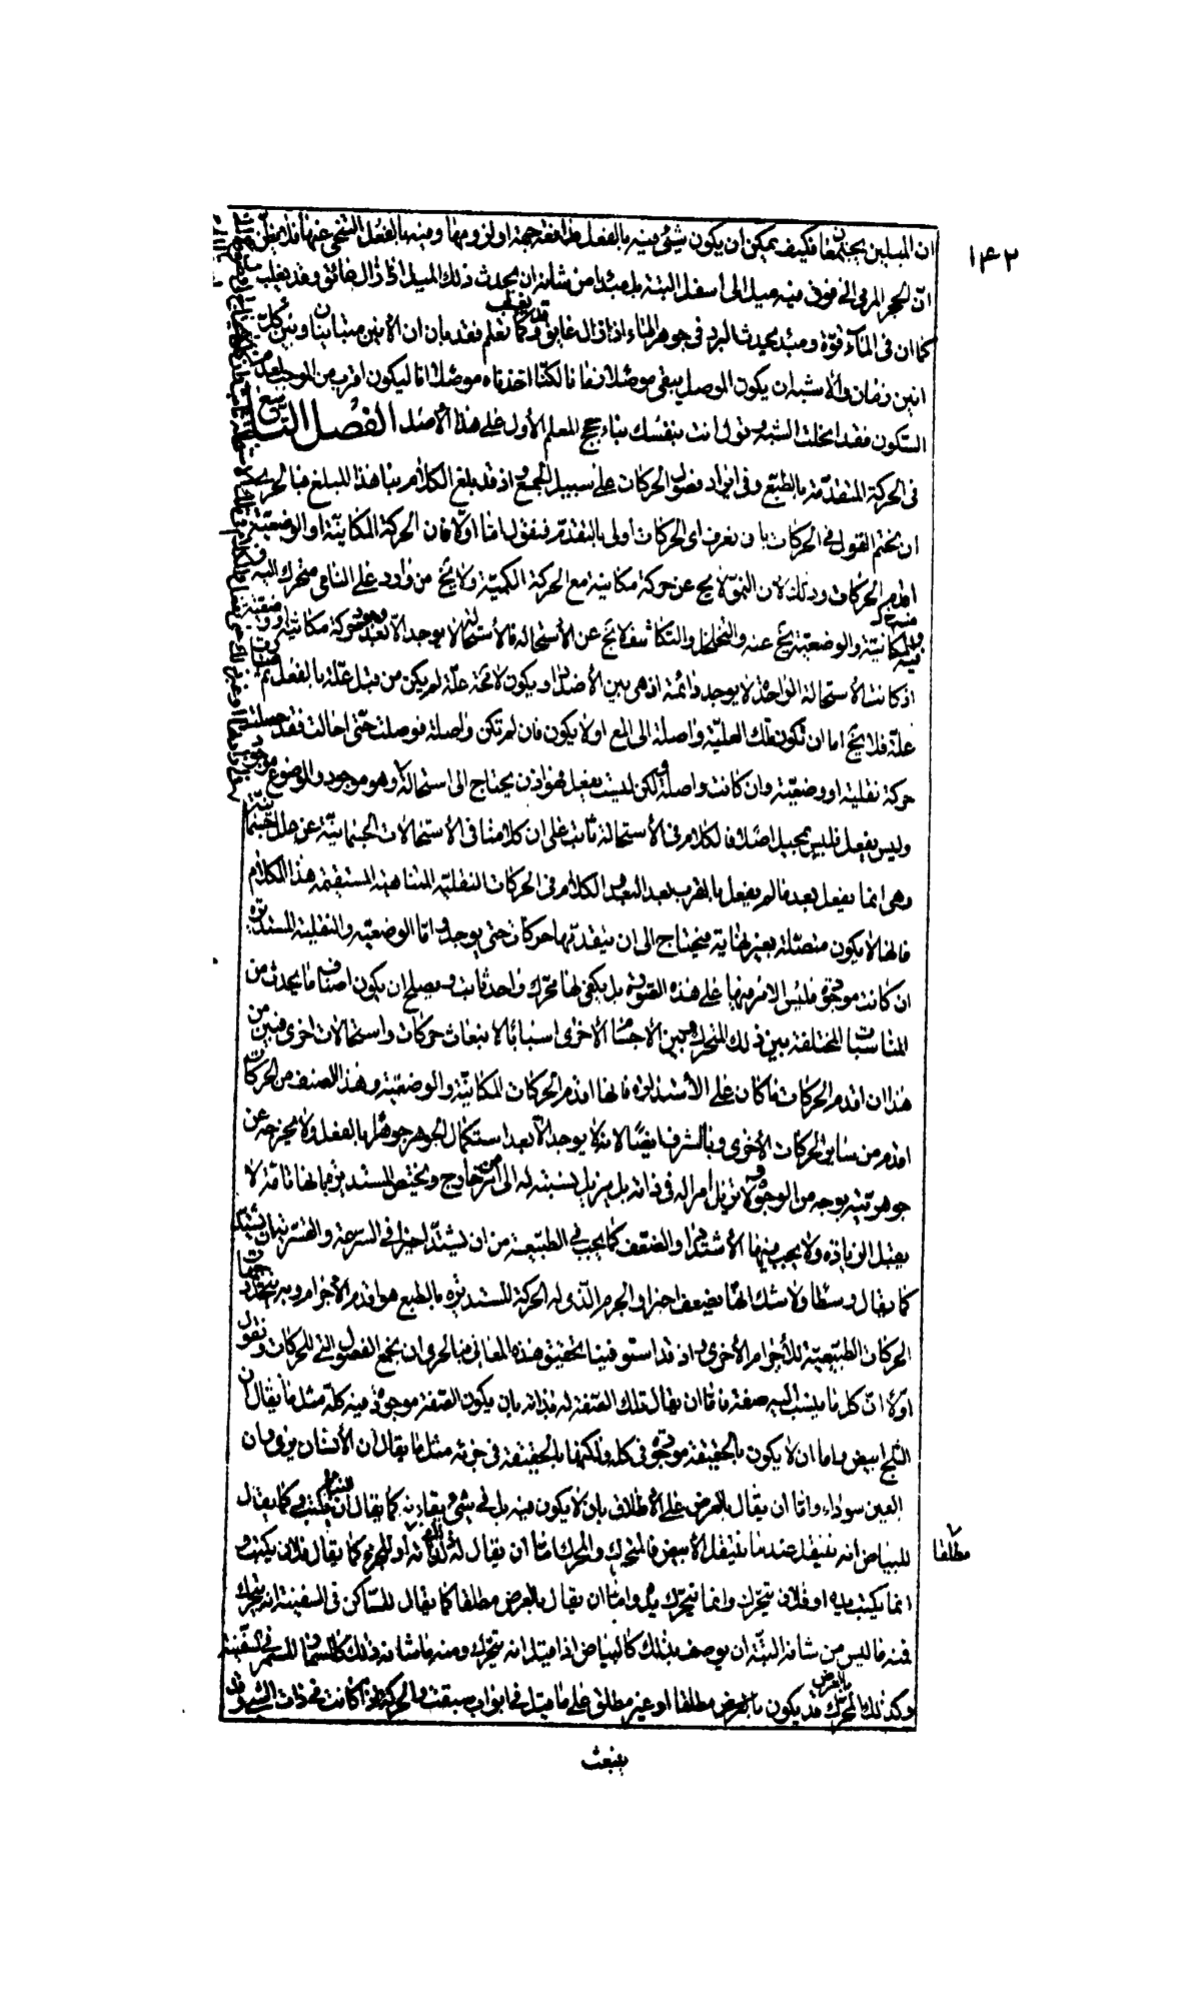 ١٤٢
ان الميلين يجتمعان فكيف يمكن ان يكون شيئ فيه بالفعل مدافعة جهة او لزومها وفيه بالفعل التنحى عنها فلا يظن
ان الحجر المرمى الى فوق فيه ميل الى اسفل البتة بل مبدا من شانه ان يحدث ذلك الميل اذا زال العائق وقد يغلب
كما ان فى الماء قوة ومبدا يحدث البرد فى جوهر الماء اذا زال عائق وكما تعلم فقد بان ان الآنين متباينان وبين كل
انين زمان والاشبه ان يكون الموصل يبقى موصلا زمانا لكنا اخذناه موصلا انا ليكون اقرب من الموجب لعدم
السكون فقد انحلت الشبه وتولى انت بنفسك بناء حجج المعلم الأول على هذا الأصل الفصل التاسع
فى الحركة المتقدمة بالطبع وفى ايراد فصول الحركات على سبيل الجمع واذ قد بلغ الكلام بنا هذا المبلغ فبالحرى
ان نختم القول فى الحركات بان نعرف اى الحركات اولى بالتقدم فنقول اما اولا فان الحركة المكانية او الوضعية
اقدم الحركات وذلك لان النمو لا يخ عن حركة مكانية مع الحركة الكمية ولا يخ من وارد على النامى متحرك اليه و
فيه والمكانية والوضعية يخ عنه والتخلخل والتكاثف لا يخ عن الأستحالة والأستحالة لا يوجد الا بعد وجود حركة مكانية او وضعية
اذ كانت الأستحالة الواحدة لا يوجد دائمة اذ هى بين الأضداد ويكون لا محة علة لم يكن من قبل علة بالفعل ثم صارت
علة فلا يخ اما ان تكون تلك العلية واصلة الى المع او لا يكون فان لم تكن واصلة فوصلت حتى احالت فقد حصلت
حركة نقلية او وضعية وان كانت واصلة ولكن ليست بفعل فهو اذن يحتاج الى استحالة وهو موجود والموضوع موجود
وليس يفعل فليس بمحيل اصلا فالكلام فى الأستحالة ثابت على ان كلامنا فى الأستحالات الجسمانية عن علل جسمانية
وهى انما يفعل بعد ما لم يفعل بالقرب بعد البعد والكلام فى الحركات النقلية المتناهية المستقيمة هذا الكلام
فانها لا يكون متصلة بغير نهاية فيحتاج الى ان يتقدمها حركات حتى يوجد واما الوضعية والنقلية المستديرة
ان كانت موجودة فليس الامر فيها على هذه الصورة بل يكفى لها محرك واحد ثابت ويصلح ان يكون اصناف ما يحدث من
المناسبات المختلفة بين ذلك المتحرك وبين الأجسام الأخرى اسبابا لانبعاث حركات واستحالات اخرى فبين من
هذا ان اقدم الحركات ما كان على الأستدارة فانها اقدم الحركات المكانية والوضعية وهذا الصنف من الحركات
اقدم من سائر الحركات الأخرى وبالشرف ايضا لانه لا يوجد الا بعد استكمال الجوهر جوهرا بالفعل ولا يخرجه عن
جوهريته بوجه من الوجوه ولا يزيل امرا له فى ذاته بل يزيل نسبته له الى امر من خارج ويختص المستديرة بانها تامة لا
يقبل الزيادة ولا يجب فيها الأشتداد والضعف كما يجب فى الطبيعية من ان يشتد اخيرا فى السرعة والقسرية ان يشتد
كما يقال وسطا ولا شك انها يضعف اخيرا والجرم الذى له الحركة المستديرة بالطبع هو اقدم الأجرام وبه يتحدد جهات
الحركات الطبيعية للأجرام الأخرى واذ قد استوفينا تحقيق هذه المعانى فبالحرى ان نجمع الفصول التى للحركات ونقول
اولا ان كل ما ينسب اليه صفة فاما ان يقال تلك الصفة له فى ذاته بان يكون الصفة موجودة فيه كله مثل ما يقال ان
الثلج ابيض واما ان لا يكون بالحقيقة موجودة فى كله ولكنها بالحقيقة فى جزئه مثل ما يقال ان الأنسان يرى وان
العين سوداء واما ان يقال بالعرض على الأطلاق بان لا يكون فيه بل فى شئ يقارنه كما يقال ان البناء يكتب وكما يقال
للبياض انه ينتقل عندما ينتقل الأبيض فالمتحرك والمحرك اما ان يقال له لذاته او للجزء كما يقال فلان يكتب و
مطلقا
انما يكتب يده او فلان يتحرك وانما يتحرك يده واما ان يقال بالعرض مطلقا كما يقال للساكن فى السفينة انه يتحرك
فمنه ما ليس من شانه البتة ان يوصف بذلك كالبياض اذا قيل انه يتحرك ومنه ما شانه ذلك كالمسمار المسمر فى السفينة
وكذلك المحرك قد يكون بالعرض مطلقا او غير مطلق على ما قيل فى ابواب سبقت والحركة اذا كانت فى ذات الشئ فقد
ينبعث